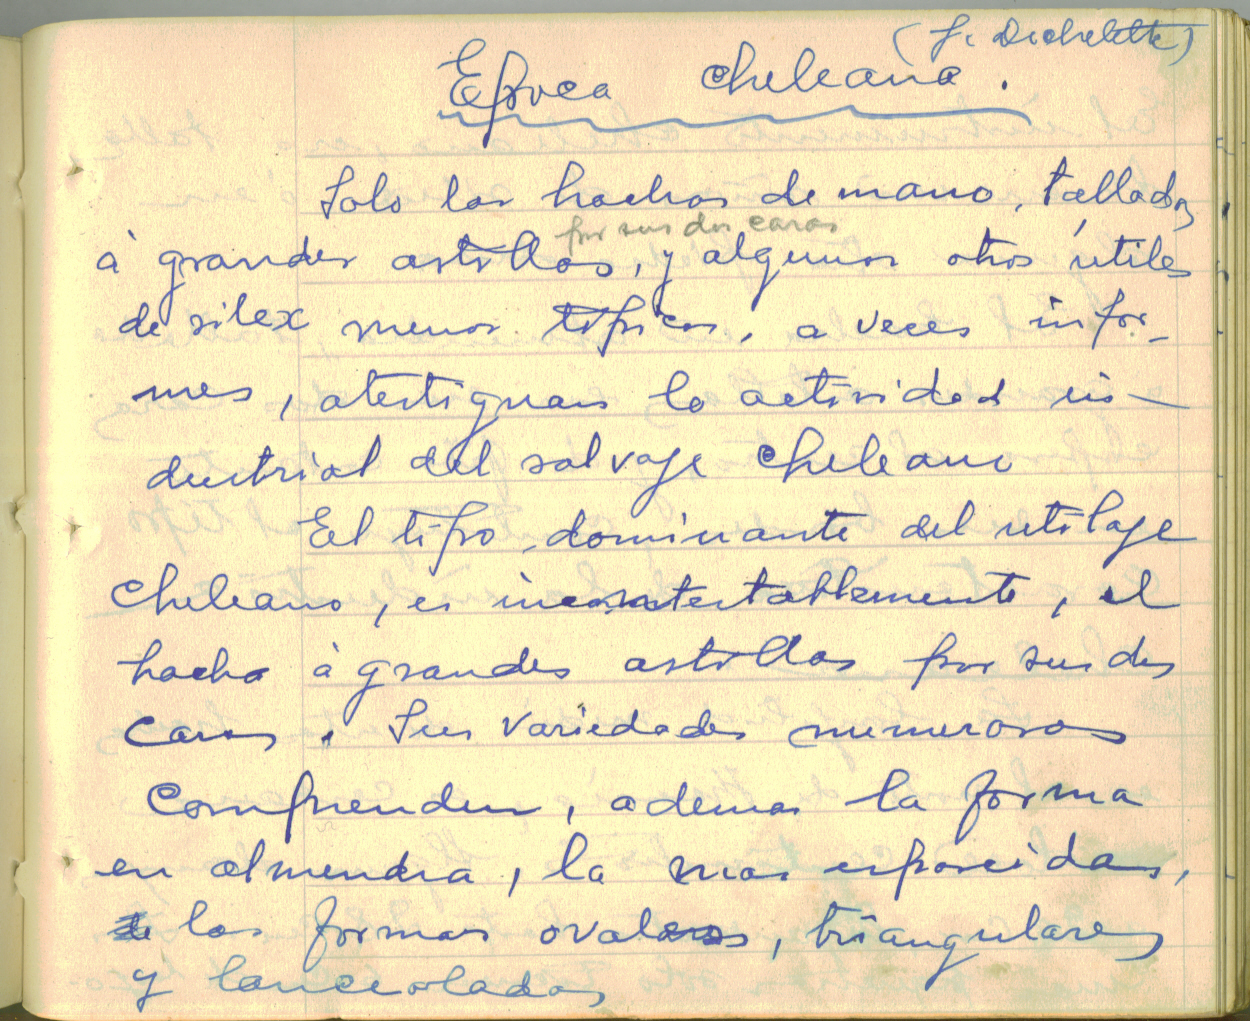 (J. Dechelette)
Epoca cheleana.
Solo las hachas de mano, tallados
por sus dos caras
à grandes astillas, y algunos otros útiles
de silex menos típicos, a veces infor-
mes, atestiguan la actividad in-
dustrial del salvaje cheleano
El tipo dominante del utilaje
cheleano, es incontestablemente, el
hacha à grandes astillas por sus dos
caras. Sus variedades numerosas
comprenden, ademas la forma
en almendra, la mas esparcidas,
las formas ovalares, triangulares
y lanceoladas